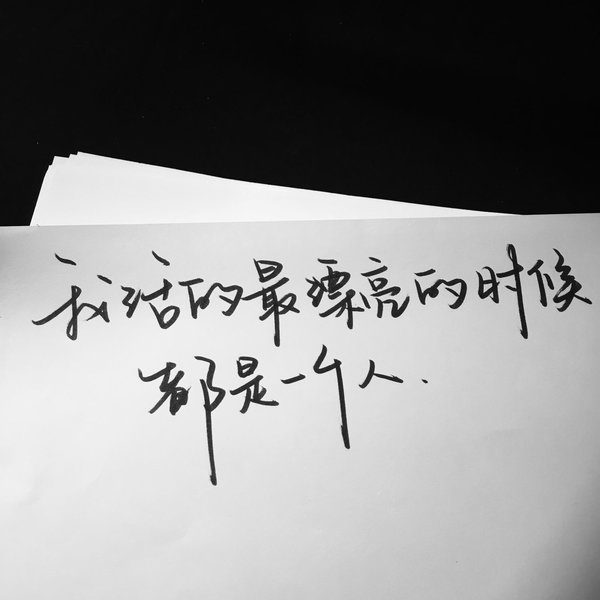 我活的最漂亮的时候
都是一个人.